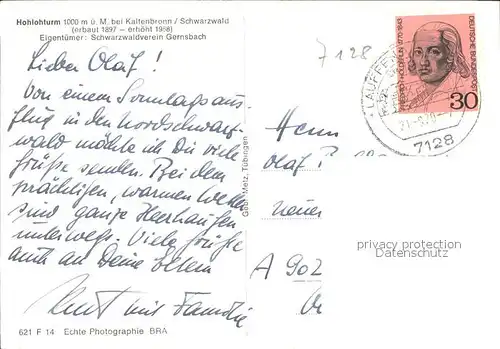 Hohlohturm 1000 m ü. M. bei Kaltenbronn / Schwarzwald
(erbaut 1897 – erhöht 1968)
Eigentümer: Schwarzwaldverein Gernsbach
Lieber Olaf!
Von einem Sonntagsaus-
flug in den Nordschwarz-
wald möchte ich Dir viele
Grüße senden. Bei dem
prächtigen, warmen Wetter
sind ganze Heerhaufen
unterwegs. Viele Grüße
auch an Deine Eltern
Kurt mit Familie
621 F 14 Echte Photographie BRA
Gebr. Metz, Tübingen
7128
LAUFFEN
7128
FRIEDRICH HÖLDERLIN 1770-1843
DEUTSCHE BUNDESPOST
30
Herrn
Olaf
A 902
privacy protection
Datenschutz